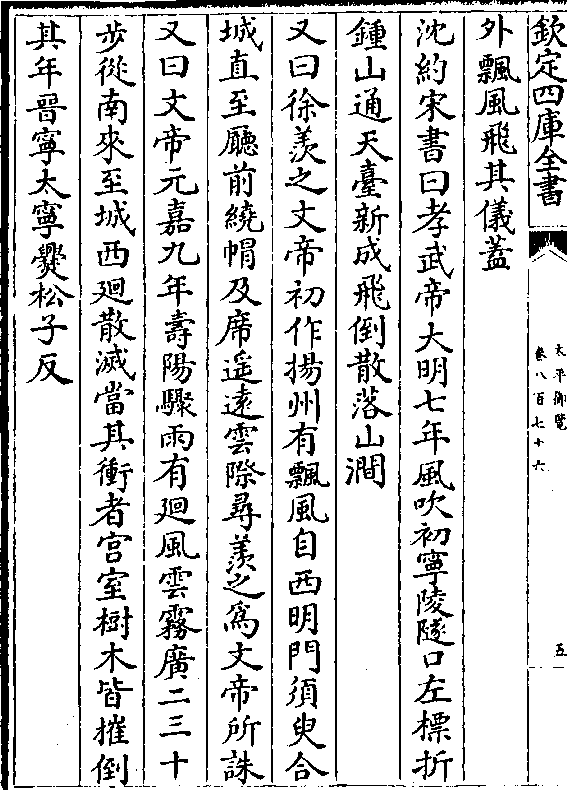 欽定四庫全書
太平御覽
卷八百七十六
五
外飄風飛其儀蓋
沈約宋書曰孝武帝大明七年風吹初寧陵隧口左標折
鍾山通天臺新成飛倒散落山澗
又曰徐羨之文帝初作揚州有飄風自西明門須臾合
城直至廳前繞帽及席遥遠雲際尋羨之為文帝所誅
又曰文帝元嘉九年壽陽驟雨有廻風雲霧廣二三十
步從南來至城西廻散滅當其衝者宫室樹木皆摧倒
其年晉寧太寧爨松子反